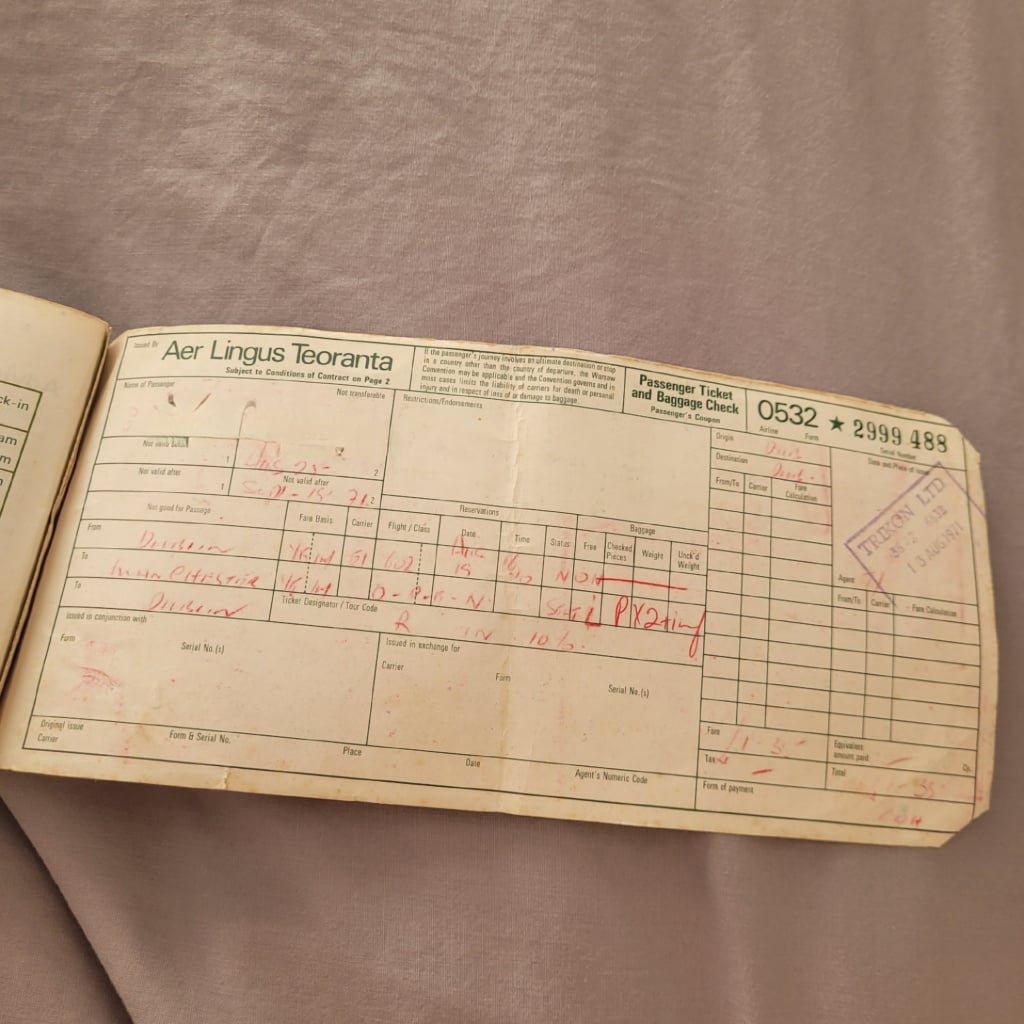 ck-in
am
m
Issued By
Aer Lingus Teoranta
Subject to Conditions of Contract on Page 2
If the passenger's journey involves an ultimate destination or stop
in a country other than the country of departure, the Warsaw
Convention may be applicable and the Convention governs and in
most cases limits the liability of carriers for death or personal
injury and in respect of loss of or damage to baggage.
Passenger Ticket
and Baggage Check
Passenger's Coupon
0532 ★ 2999 488
Airline Form Serial Number
Name of Passenger
Not transferable
Restrictions/Endorsements
Origin
Date and Place of issue
Destination
From/To Carrier Fare Calculation
Not valid before
1 2
Not valid after
1 Not valid after
Sept 15 71 2
TRIKON LTD
13 AUG 1971
Agent
From/To Carrier Fare Calculation
Not good for Passage Fare Basis Carrier Flight/Class
Reservations
Date Time Status
Baggage
Free Checked Pieces Weight Unck'd Weight
From
Dublin
To
To
Dublin
O-P-E-N
PX2+inf
Ticket Designator / Tour Code
IN 10%
Issued in conjunction with
Form Serial No.(s)
Issued in exchange for
Carrier Form Serial No.(s)
Original issue
Carrier Form & Serial No. Place Date Agent's Numeric Code
Fare
Equivalent
amount paid Cy.
Tax
Total
Form of payment